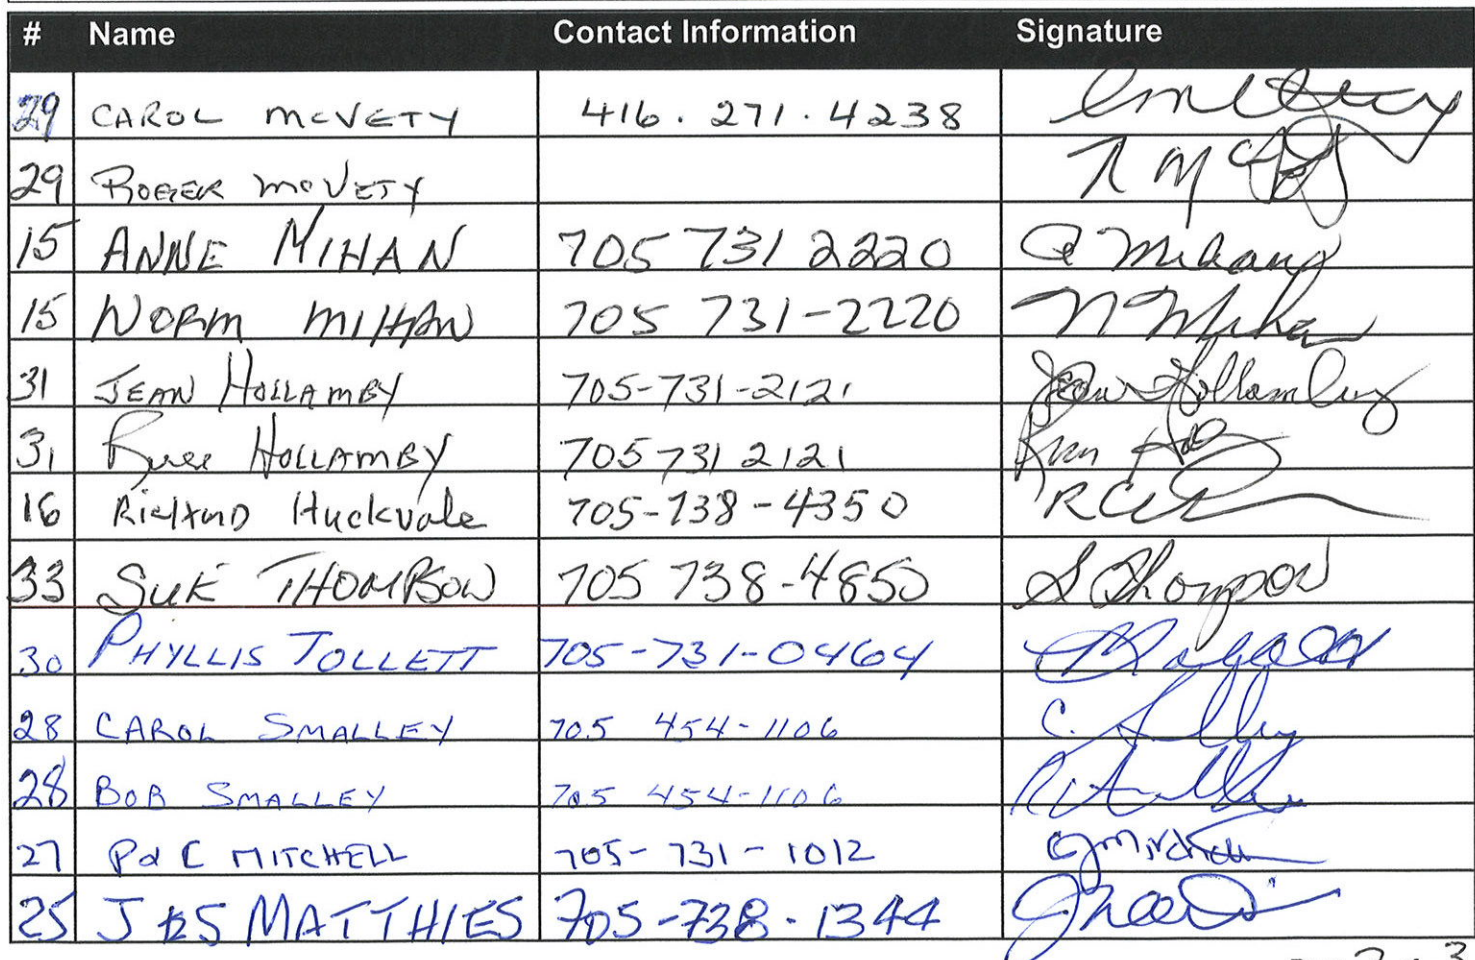 # Name Contact Information Signature
29 CAROL McVETY 416.271.4238
29 ROGER McVETY R McV
15 ANNE MIHAN 705 731 2220 A Mihan
15 NORM MIHAN 705 731-2220 N Mihan
31 JEAN HOLLAMBY 705-731-2121 Jean Hollamby
31 Russ HOLLAMBY 705 731 2121 Russ
16 RICHARD Huckvale 705-738-4350
33 SUE THOMPSON 705 738-4850 S Thompson
30 PHYLLIS TOLLETT 705-731-0464
28 CAROL SMALLEY 705 454-1106 C. Smalley
28 BOB SMALLEY 705 454-1106
27 P & C MITCHELL 705-731-1012 C Mitchell
25 J & S MATTHIES 705-738-1344
3